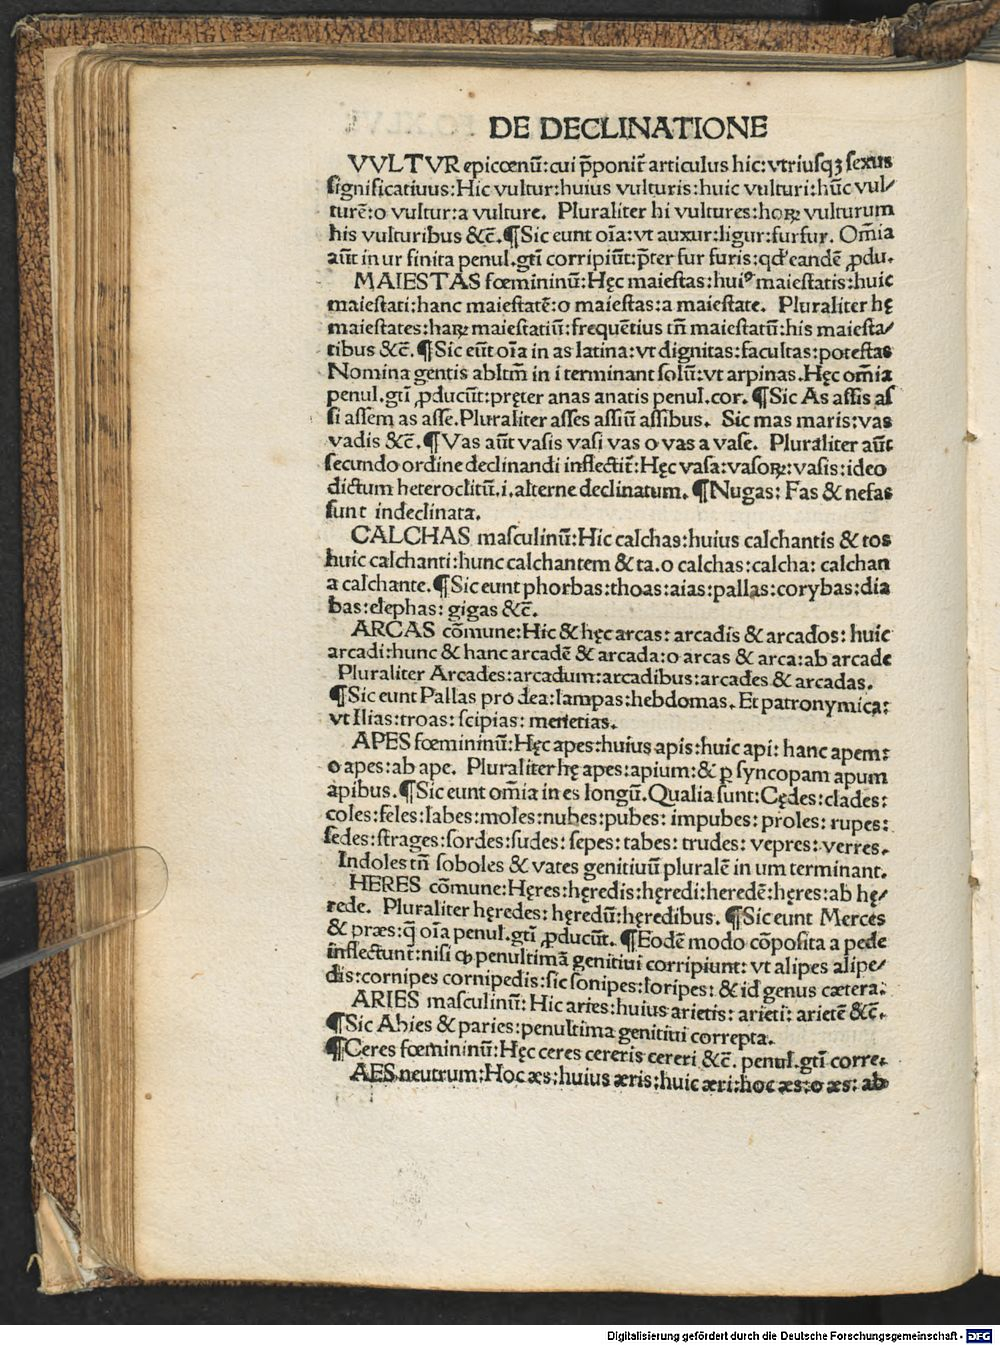 DE DECLINATIONE
VVLTVR epicœnū: cui p̄ponit̄ articulus hic: vtriusqꝫ ſexus
ſignificatiuus: Hic vultur: huius vulturis: huic vulturi: hūc vul⸗
turē: o vultur: a vulture. Pluraliter hi vultures: hoꝝ vulturum
his vulturibus &c̄. ¶ Sic eunt oīa: vt auxur: ligur: furfur. Om̄ia
aūt in ur finita penul. gtī corripiūt: p̄ter fur furis: qđ eandē ꝓdu.
MAIESTAS fœmininū: Hęc maieſtas: huiꝰ maieſtatis: huic
maieſtati: hanc maieſtatē: o maieſtas: a maieſtate. Pluraliter hę
maieſtates: haꝝ maieſtatiū: frequētius tn̄ maieſtatū: his maieſta⸗
tibus &c̄. ¶ Sic eūt oīa in as latina: vt dignitas: facultas: poteſtas
Nomina gentis abltm̄ in i terminant ſolū: vt arpinas. Hęc om̄ia
penul. gtī ꝓducūt: pręter anas anatis penul. cor. ¶ Sic As aſſis aſ
ſi aſſem as aſſe. Pluraliter aſſes aſſiū aſſibus. Sic mas maris: vas
vadis &c̄. ¶ Vas aūt vaſis vaſi vas o vas a vaſe. Pluraliter aūt
ſecundo ordine declinandi inflectit̄: Hęc vaſa: vaſoꝝ: vaſis: ideo
dictum heteroclitū. i. alterne declinatum. ¶ Nugas: Fas & nefas
ſunt indeclinata.
CALCHAS maſculinū: Hic calchas: huius calchantis & tos
huic calchanti: hunc calchantem & ta. o calchas: calcha: calchan
a calchante. ¶ Sic eunt phorbas: thoas: aias: pallas: corybas: dia
bas: elephas: gigas &c̄.
ARCAS cōmune: Hic & hęc arcas: arcadis & arcados: huic
arcadi: hunc & hanc arcadē & arcada: o arcas & arca: ab arcade
Pluraliter Arcades: arcadum: arcadibus: arcades & arcadas.
¶ Sic eunt Pallas pro dea: lampas: hebdomas. Et patronymica:
vt Ilias: troas: ſcipias: menetias.
APES fœmininū: Hęc apes: huius apis: huic api: hanc apem:
o apes: ab ape. Pluraliter hę apes: apium: & ꝑ ſyncopam apum
apibus. ¶ Sic eunt om̄ia in es longū. Qualia ſunt: Cędes: clades:
coles: feles: labes: moles: nubes: pubes: impubes: proles: rupes:
ſedes: ſtrages: ſordes: ſudes: ſepes: tabes: trudes: vepres: verres.
Indoles tn̄ ſoboles & vates genitiuū pluralē in um terminant.
HERES cōmune: Hęres: hęredis: hęredi: heredē: hęres: ab hę⸗
rede. Pluraliter hęredes: hęredū: hęredibus. ¶ Sic eunt Merces
& præs: q̄ oīa penul. gtī ꝓducūt. ¶ Eodē modo cōpoſita a pede
inflectunt: niſi ꝙ penultimā genitiui corripiunt: vt alipes alipe⸗
dis: cornipes cornipedis: ſic ſonipes: loripes: & id genus cætera.
ARIES maſculinū: Hic aries: huius arietis: arieti: arietē &c̄.
¶ Sic Abies & paries: penultima genitiui correpta.
¶ Ceres fœmininū: Hęc ceres cereris cereri &c̄. penul. gtī corre.
AES neutrum: Hoc æs: huius æris: huic æri: hoc æs: o æs: ab
Digitalisierung gefördert durch die Deutsche Forschungsgemeinschaft - DFG